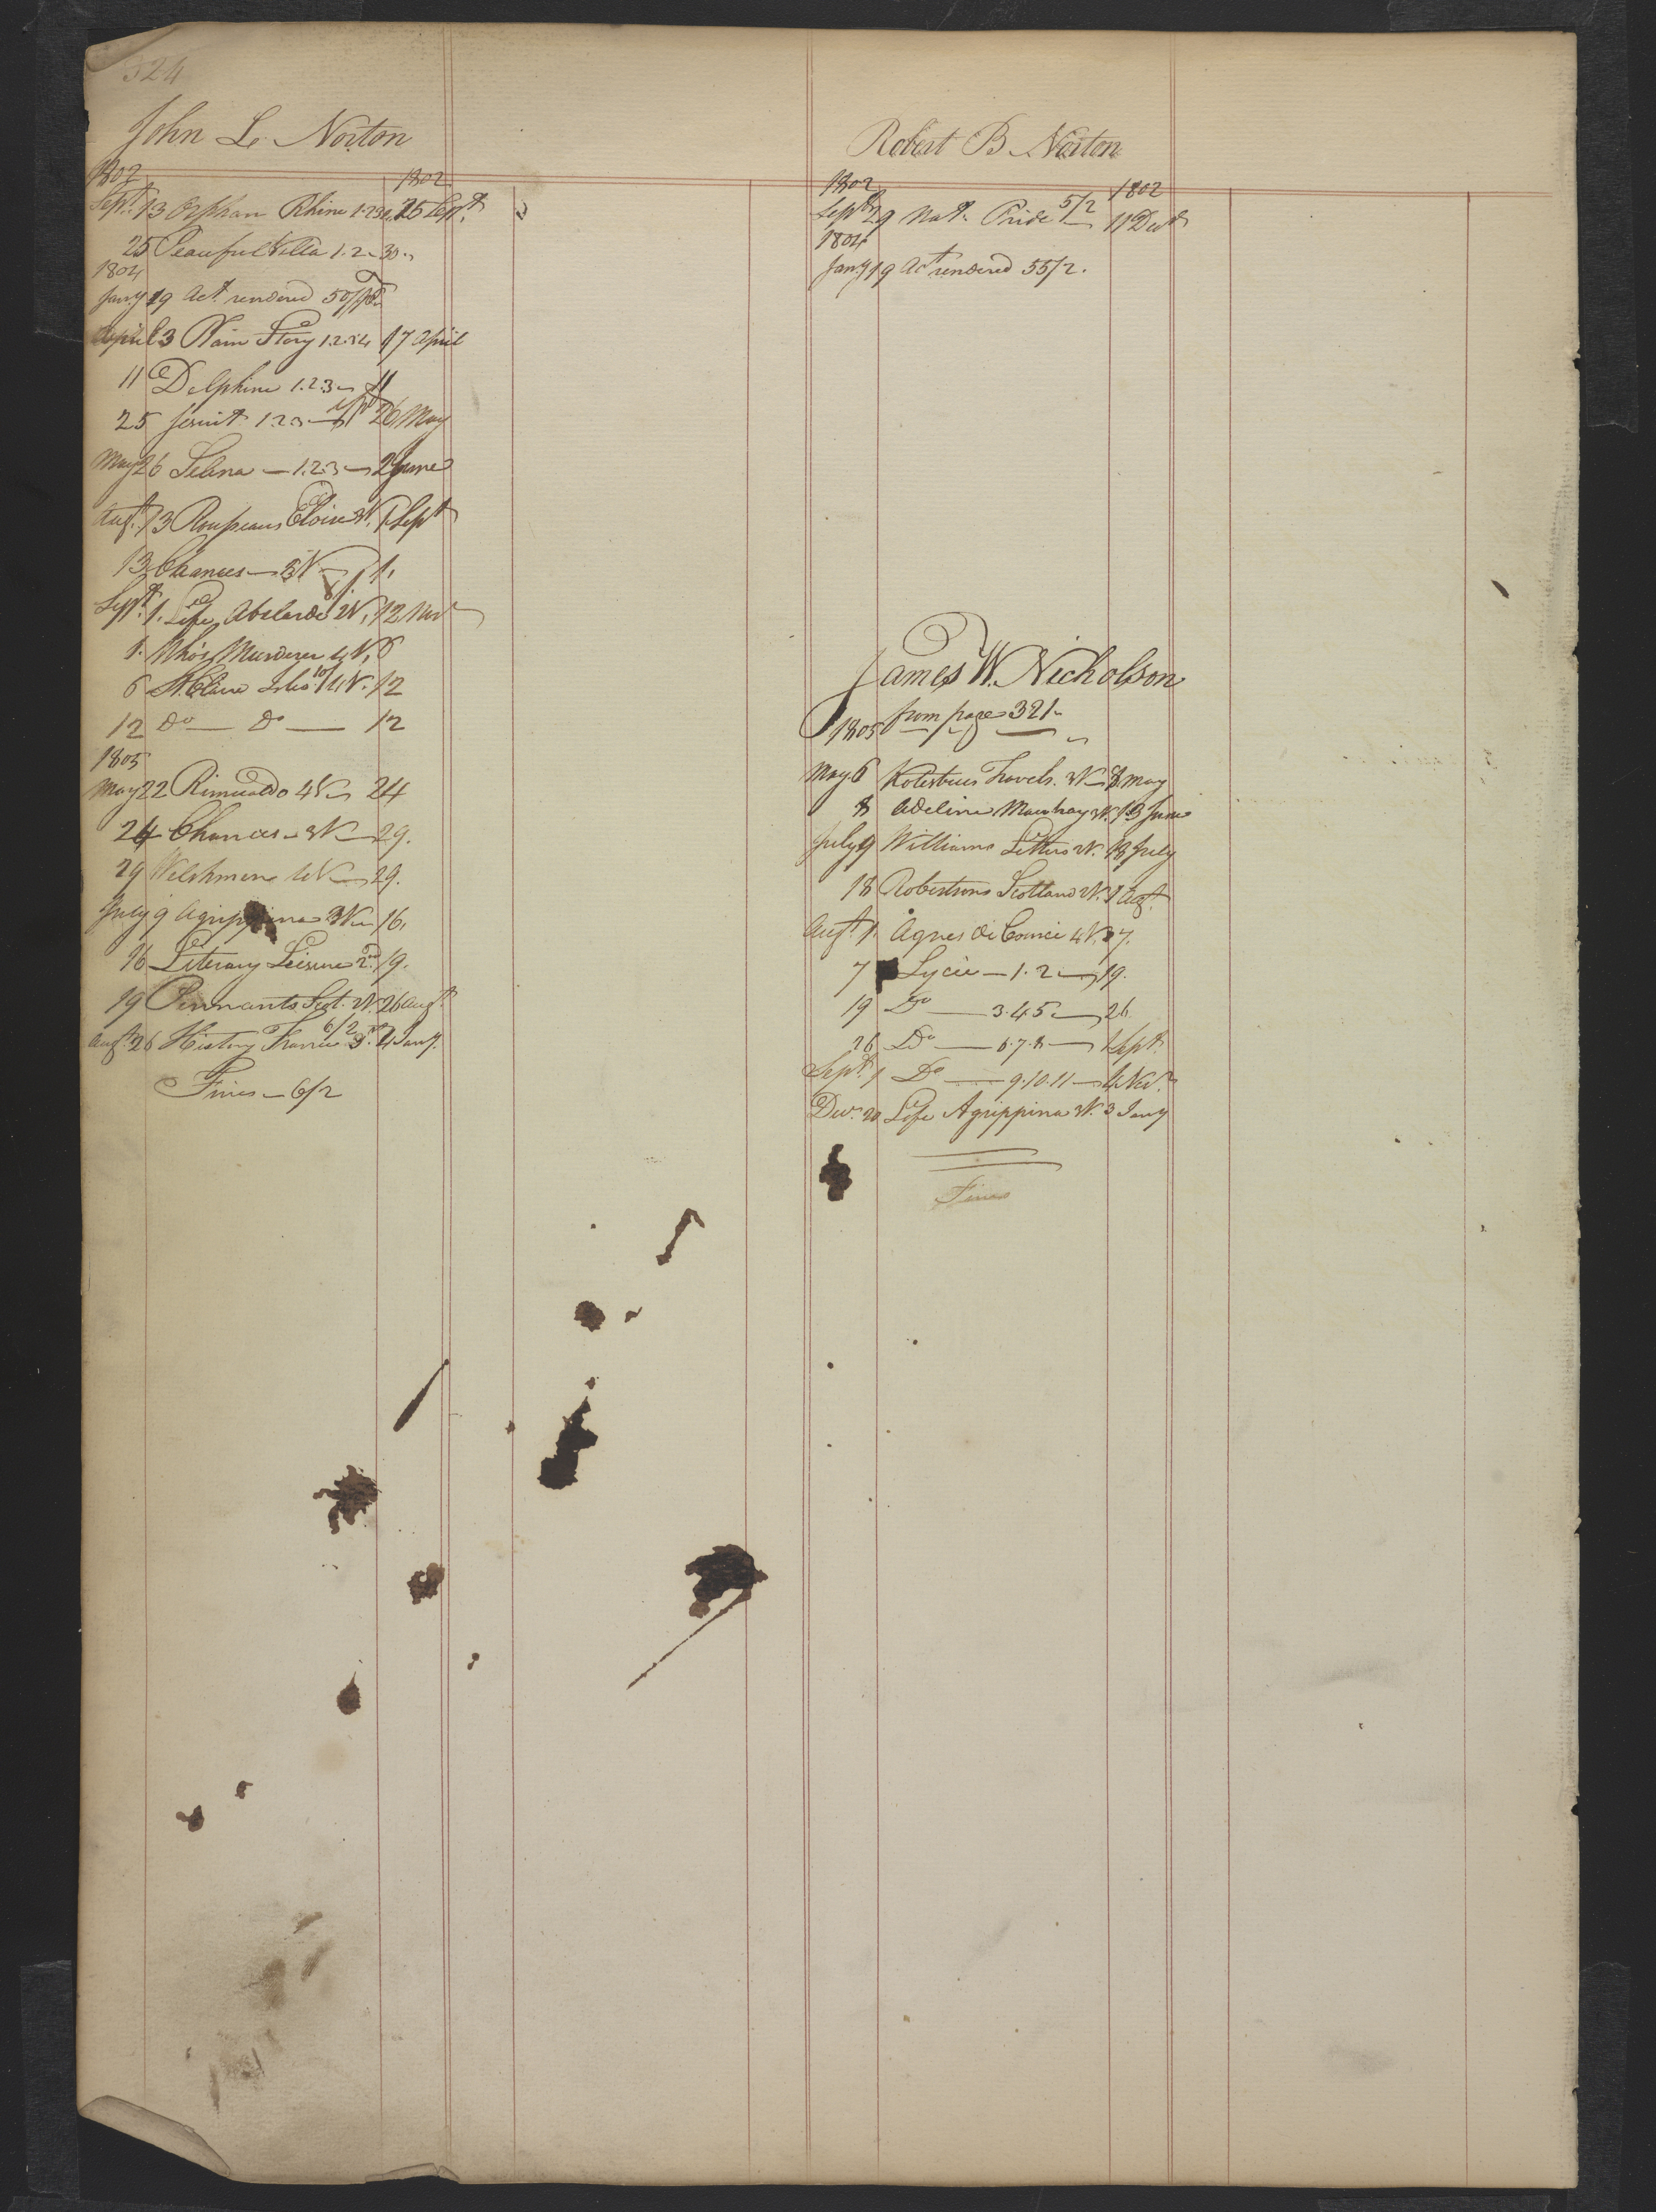 324
John L. Norton
1802 1802
Sept. 13 Orphan Rhine 1.2.3.4. 25 Sept.
25 Peaceful Villa 1.2 30.
1804
Jany 19 Act. rendered
April 3 Plain Story 1.2.3.4 17 April
11 Delphine 1.2.3
25 Jesuit 1.2.3 26 May
May 26 Selina 1.2.3 2 June
Augt. 13 Rousseaus Eloise 3V. 1 Sept
13 Chances 3V 1.
Sept. 1. Life Abelarde 2V, 12 Nov
1. Who's Murderer 4V, 6
6 St. Clairs Isles 4V. 12
12 Do Do 12
1805
May 22 Rimualdo 4V 24
24 Chances 3V 29.
29 Welchmen 4V 29.
July 9 Agrippina 3V 16.
16 Literary Leisure 2. 19.
19 Pennants Scot. 2V. 26 Augt
Augt 26 History France 6/2 3. 4 Jany.
Fines 6/2
Robert B Norton
1802 1802
Sept 29 Natl. Pride 5/2 11 Decr
1804
Jany 19 Act rendered 55/2.
James W. Nicholson
from page 321
1805
May 6 Kotesbues Travels. 3V 8 May
8 Adeline Mowbray 3V. 13 June
July 9 Williams Letters 2V. 18 July
18 Robertsons Scotland 2V. 1 Augt.
Augt. 1. Agnes de Courci 4V. 7.
7 Lycée 1.2 19.
19 Do 3.4.5 26
26 Do 6.7.8 1 Sept.
Sept. 1 Do 9.10.11 4 Nov.
Decr. 20 Life Agrippina 3V. 3 Jany
Fines